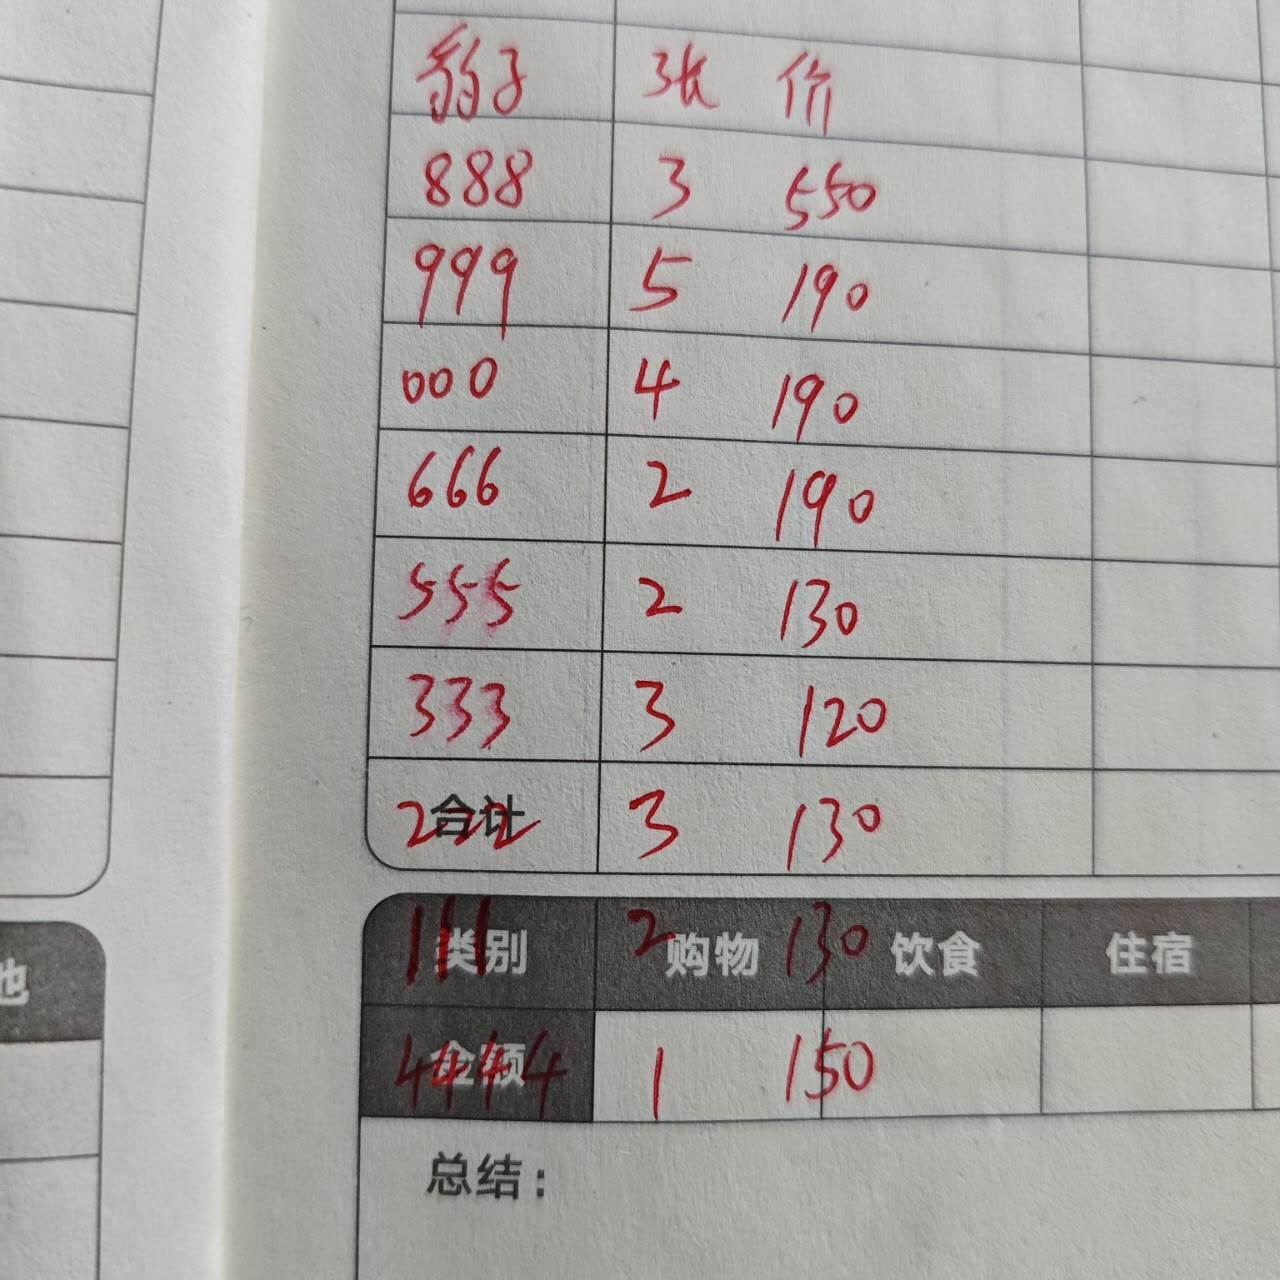 豹子 张 价
888 3 550
999 5 190
000 4 190
666 2 190
555 2 130
333 3 120
合计 222 3 130
类别 111 购物 2 130 饮食 住宿
金额 4444 1 150
总结：